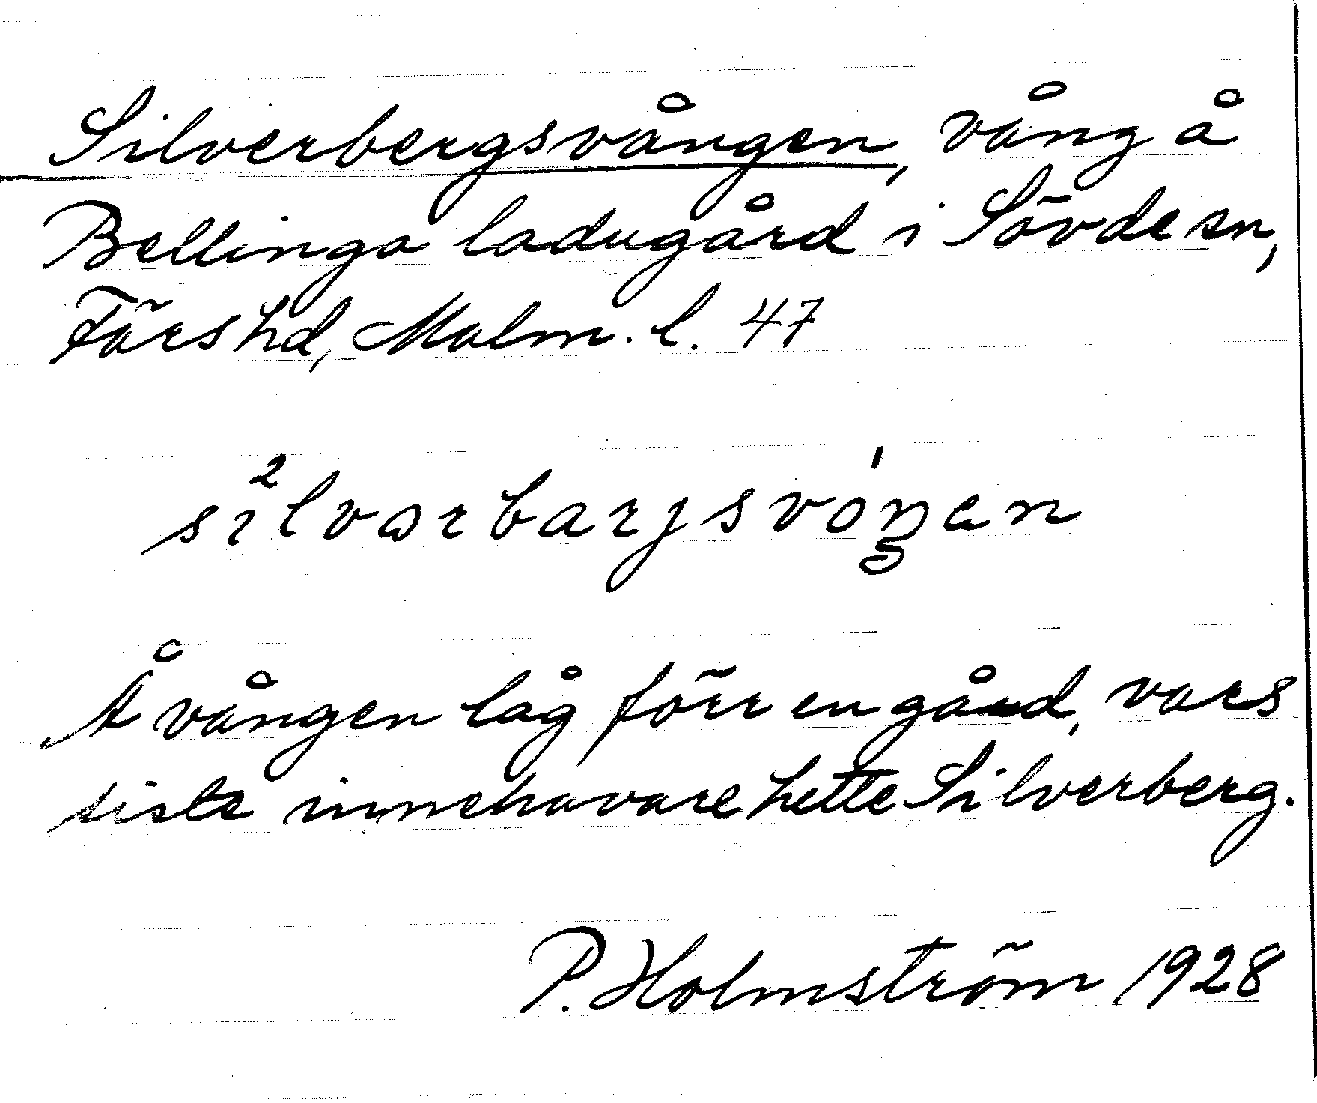 Silverbergsvången, vång å
Bellinga ladugård i Sövde sn,
Färs hd, Malm. l. 47
si²lvərbarjsvo̍ŋen
Å vången låg förr en gård, vars
siste innehavare hette Silverberg.
P. Holmström 1928